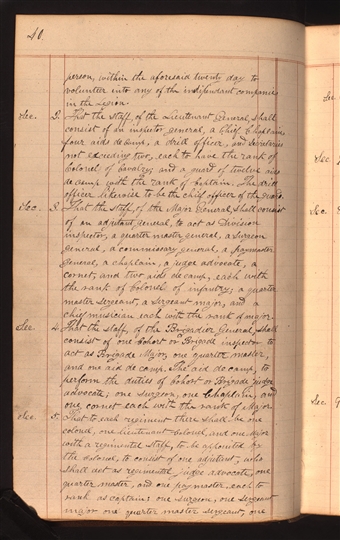 40.
person, within the aforesaid twenty day to
volunteer into any of the independent companies
in the Legion.
Sec. 2. That the staff, of the Lieutenant General, shall
consist of an inspector, general, a Chief Chaplain,
four aids de camp, a drill officer, and Secretaries
not exceeding two, each to have the rank of
Colonel of cavalry, and a guard of twelve aids
de camp with the rank of Captain. The drill
officer likewise to be the chief officer of the guard.
Sec. 3. That the staff, of the Major General, shall consist
of an adjutant general, to act as Division
inspector, a quarter master general, a surgeon
general, a commissary general, a paymaster
general, a chaplain, a judge advocate, a
cornet, and two aids de camp, each with
the rank of Colonel of infantry; a quarter
master sergeant, a sergeant major, and a
chief musician each with the rank of major.
Sec. 4. That the staff, of the Brigadier General, shall
consist of one Cohort or Brigade inspector to
act as Brigade Major, one quarter master,
and one aid de camp. The aid de camp, to
perform the duties of Cohort or Brigade judge
advocate; one surgeon, one Chaplain, and
one cornet each with the rank of Major.
Sec. 5. That to each regiment there shall be one
colonel, one lieutenant Colonel, and one Major
with a regimental staff, to be appointed by
the Colonel, to consist of one adjutant, who
shall act as regimental judge advocate, one
quarter master, and one paymaster, each to
rank as captain: one surgeon, one sergeant
major one quarter master sergeant, one
Sec
Sec.
Sec
Sec.